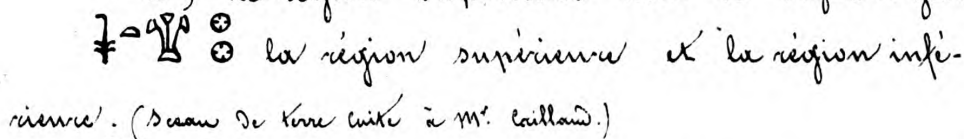 la région supérieure et la région infé-
rieure. (Sceau de terre cuite à Mr. Cailliaud.)